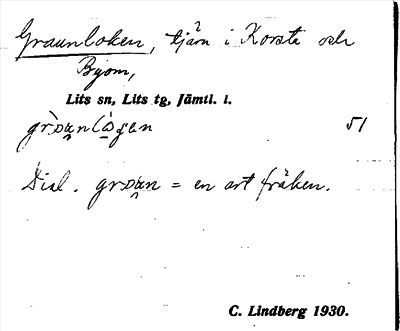 Graunloken, tjärn i Korsta och
Byom,
Lits sn, Lits tg, Jämtl. l.
51
Dial. = en art fräken.
C. Lindberg 1930.